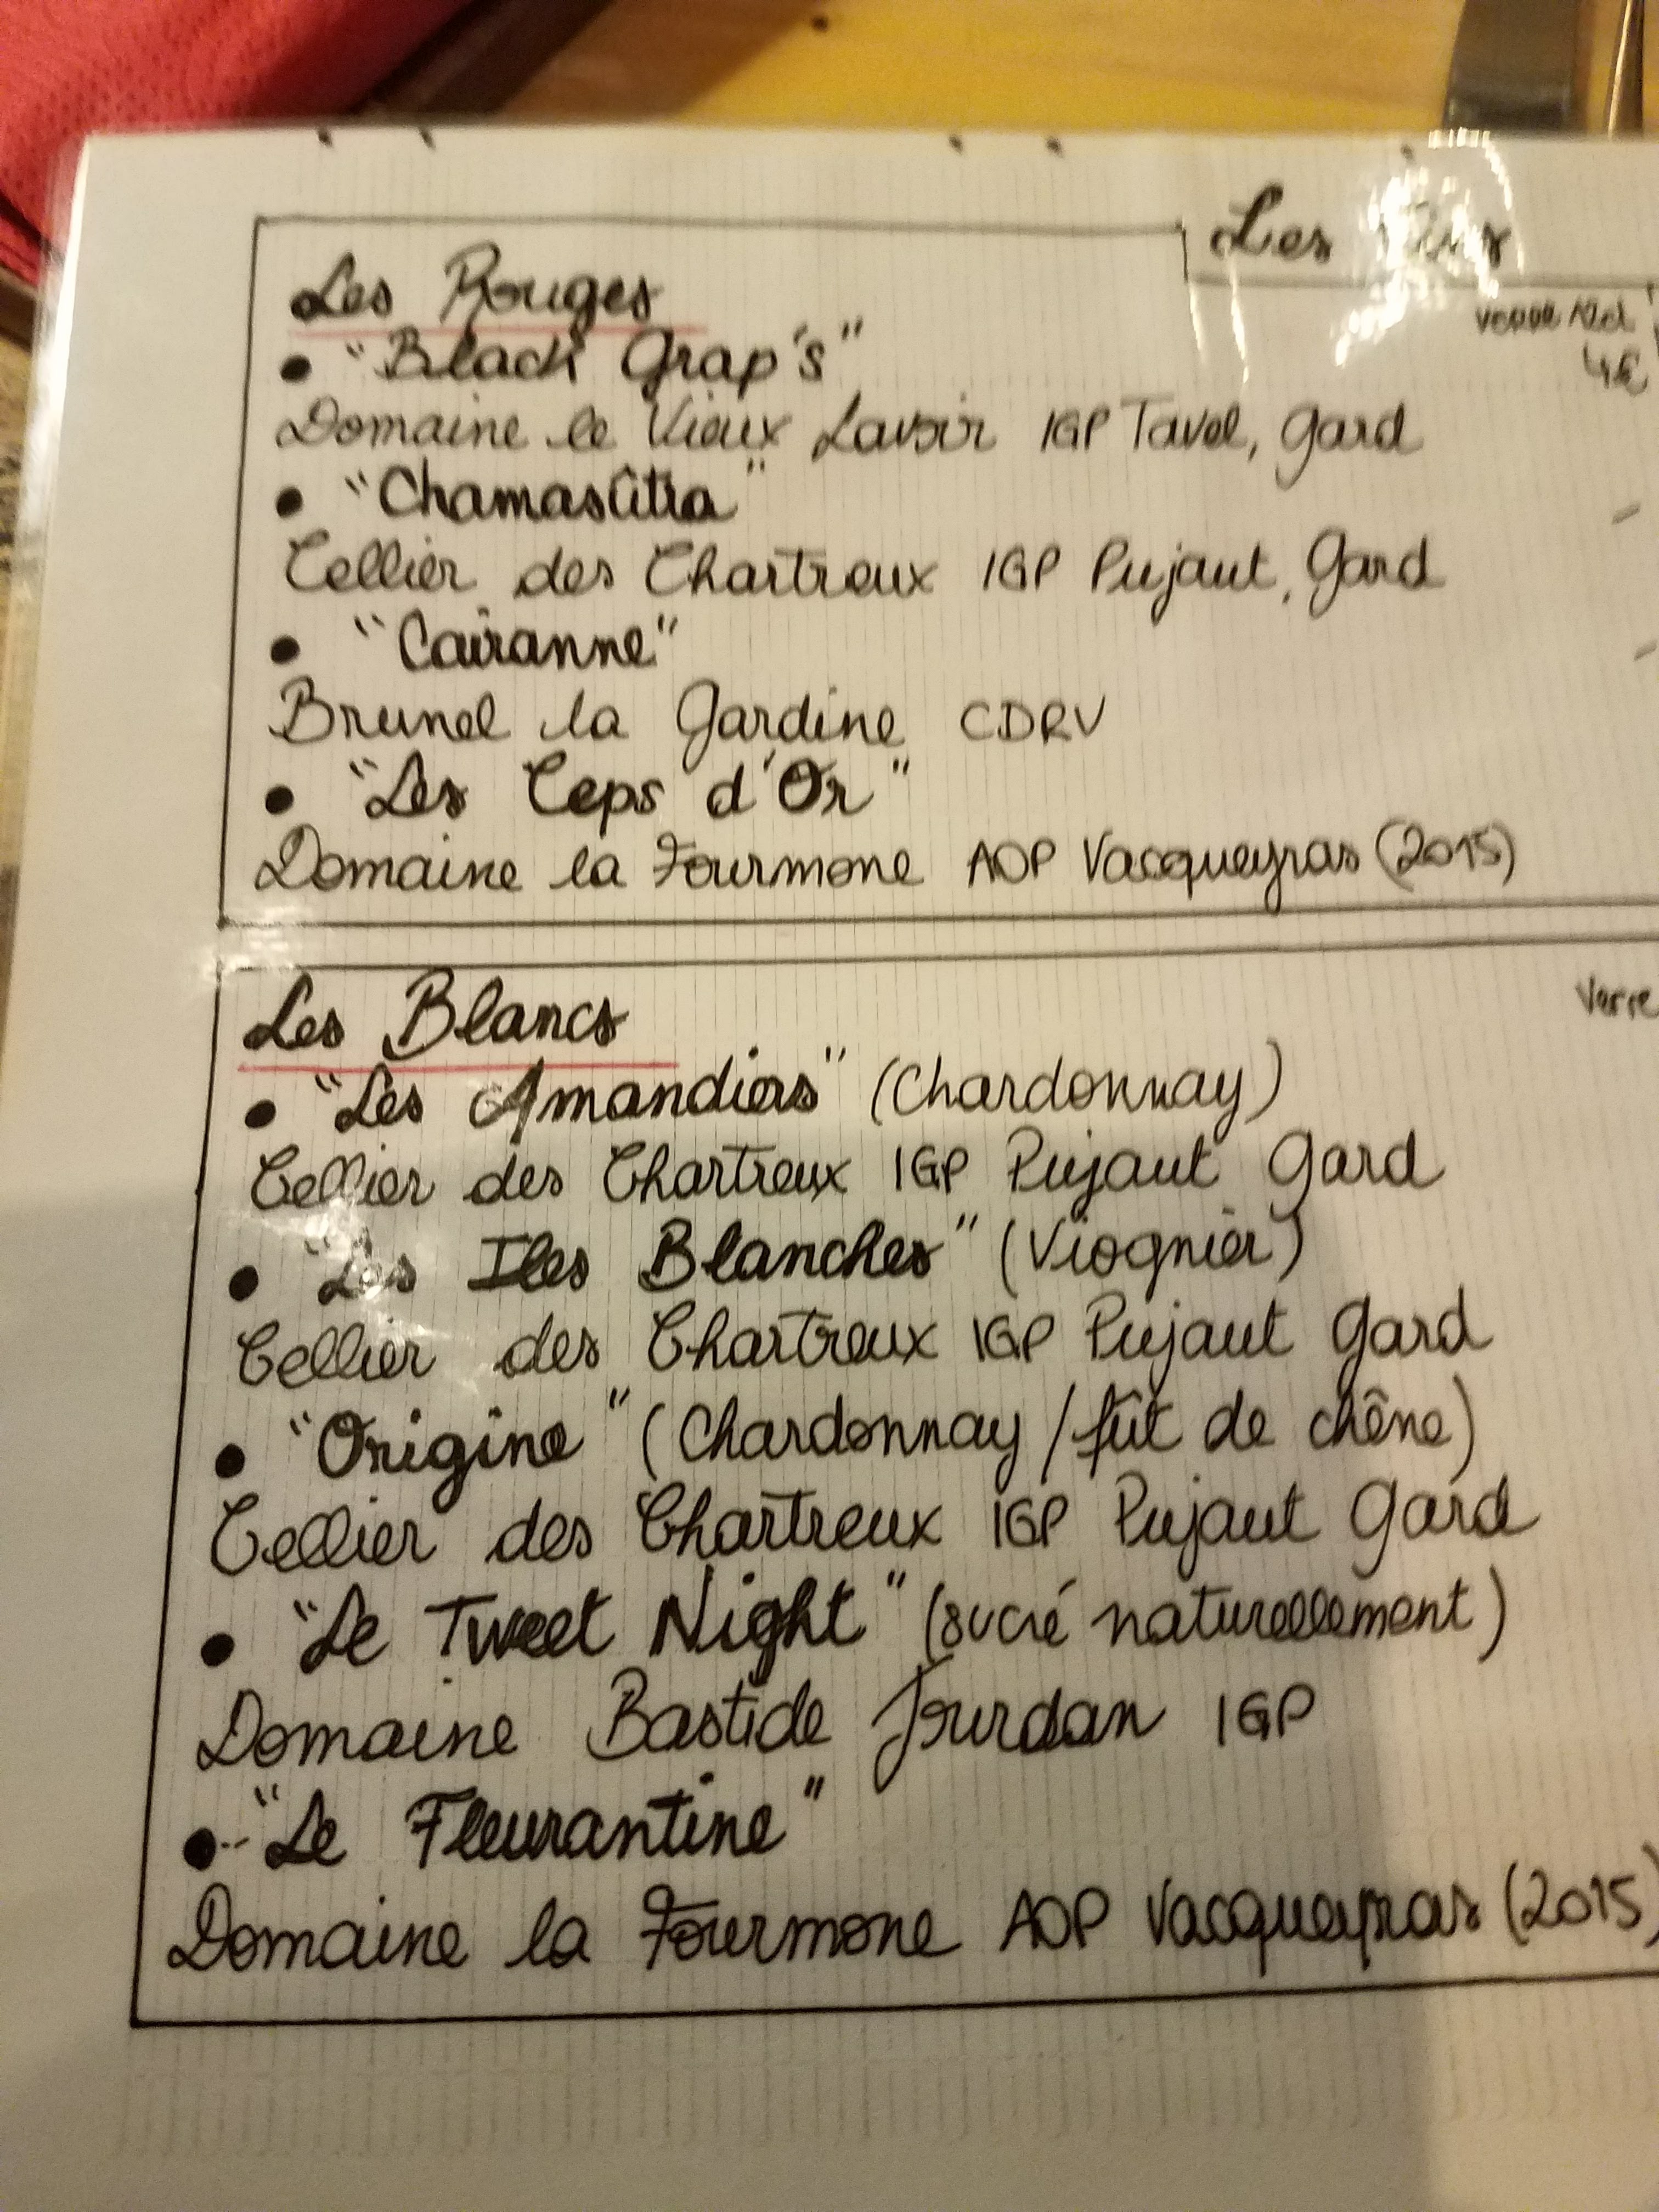 Les Vins
Les Rouges
verre 12cl
• "Black Grap's"
4€
Domaine le Vieux Lavoir IGP Tavel, Gard
• "Chamasûtra"
Cellier des Chartreux IGP Pujaut, Gard
• "Cairanne"
Brunel la Gardine CDRV
• "Les Ceps d'Or"
Domaine la Fourmone AOP Vacqueyras (2015)
Les Blancs
Verre
• "Les Amandiers" (Chardonnay)
Cellier des Chartreux IGP Pujaut Gard
• "Les Iles Blanches" (Viognier)
Cellier des Chartreux IGP Pujaut Gard
• "Origine" (Chardonnay / fût de chêne)
Cellier des Chartreux IGP Pujaut Gard
• "Le Tweet Night" (sucré naturellement)
Domaine Bastide Jourdan IGP
• "Le Fleurantine"
Domaine la Fourmone AOP Vacqueyras (2015)